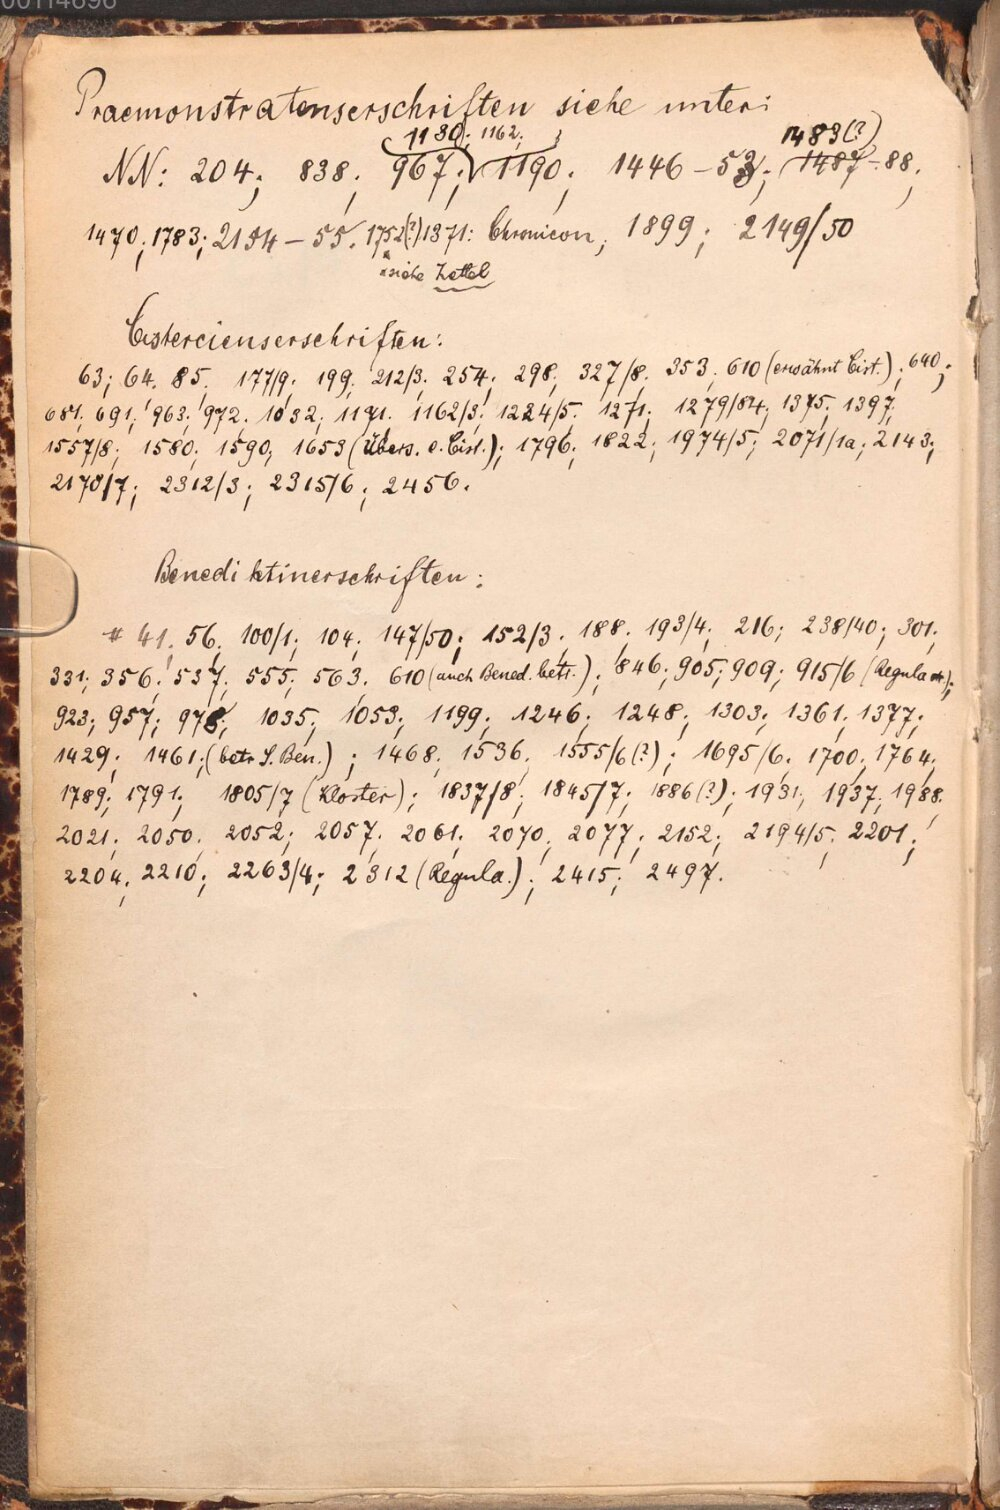 00114696
Praemonstratenserschriften siehe unter:
1130; 1162; 1483(?)
NN: 204; 838; 967; 1190; 1446–53; 1487–88;
1470; 1783; 2154–55; 1752(?) 1371: Chronicon; 1899; 2149/50
*siehe Zettel
Cistercienserschriften:
63; 64; 85; 177/9; 199; 212/3; 254; 298; 327/8; 353; 610 (erwähnt Cist.); 640;
681; 691; 963; 972; 1032; 1191; 1162/3; 1224/5; 1271; 1279/84; 1375; 1397;
1557/8; 1580; 1590; 1653 (Übers. e. Cist.); 1796; 1822; 1974/5; 2071/1a; 2143;
2170/7; 2312/3; 2315/6; 2456.
Benediktinerschriften:
# 41; 56; 100/1; 104; 147/50; 152/3; 188; 193/4; 216; 238/40; 301;
331; 356; 537; 555; 563; 610 (auch Bened. betr.); 846; 905; 909; 915/6 (Regula);
923; 957; 978; 1035; 1053; 1199; 1246; 1248; 1303; 1361; 1377;
1429; 1461; (betr. S. Ben.); 1468; 1536; 1555/6 (?); 1695/6; 1700; 1764;
1789; 1791; 1805/7 (Kloster); 1837/8; 1845/7; 1886 (?); 1931; 1937; 1988;
2021; 2050; 2052; 2057; 2061; 2070; 2077; 2152; 2194/5; 2201;
2204; 2210; 2263/4; 2312 (Regula.); 2415; 2497.